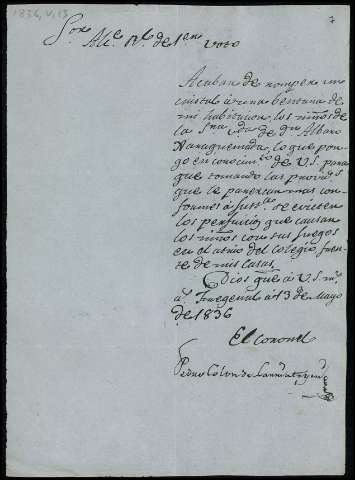 1836, V, 13
7
Sor Alce Rl de 1er voto
Acaban de romper un
cristal á una bentana de
mi habitacion los niños de
la Sra vda de dn Albaro
Jaraquemada, lo que pon-
go en conocimto de V.S. para
que tomando las provids
que le parezcan mas con-
formes á justa se eviten
los perjuicios que causan
los niños con sus juegos
en el atrio del colegio fren-
te de mis casas.
Dios gue á V.S. ms
as Fregenal á 13 de Mayo
de 1836
El coronel
Pedro Colon de